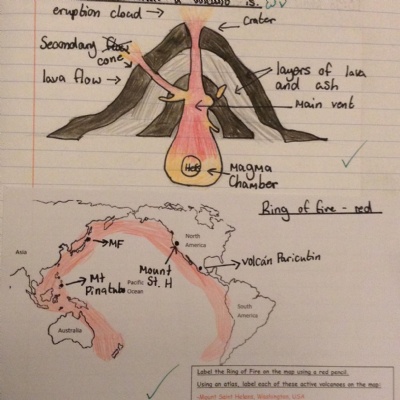 a volcano is.
eruption cloud
Crater
Secondary flow
cone
lava flow
layers of lava
and ash
Main vent
Hot
Magma
Chamber
Ring of fire - red
Asia
MF
North
America
Volcán Paricutin
Mt
Pinatubo
Pacific
Ocean
Mount
St. H
South
America
Australia
Label the Ring of Fire on the map using a red pencil.
Using an atlas, label each of these active volcanoes on the map:
-Mount Saint Helens, Washington, USA